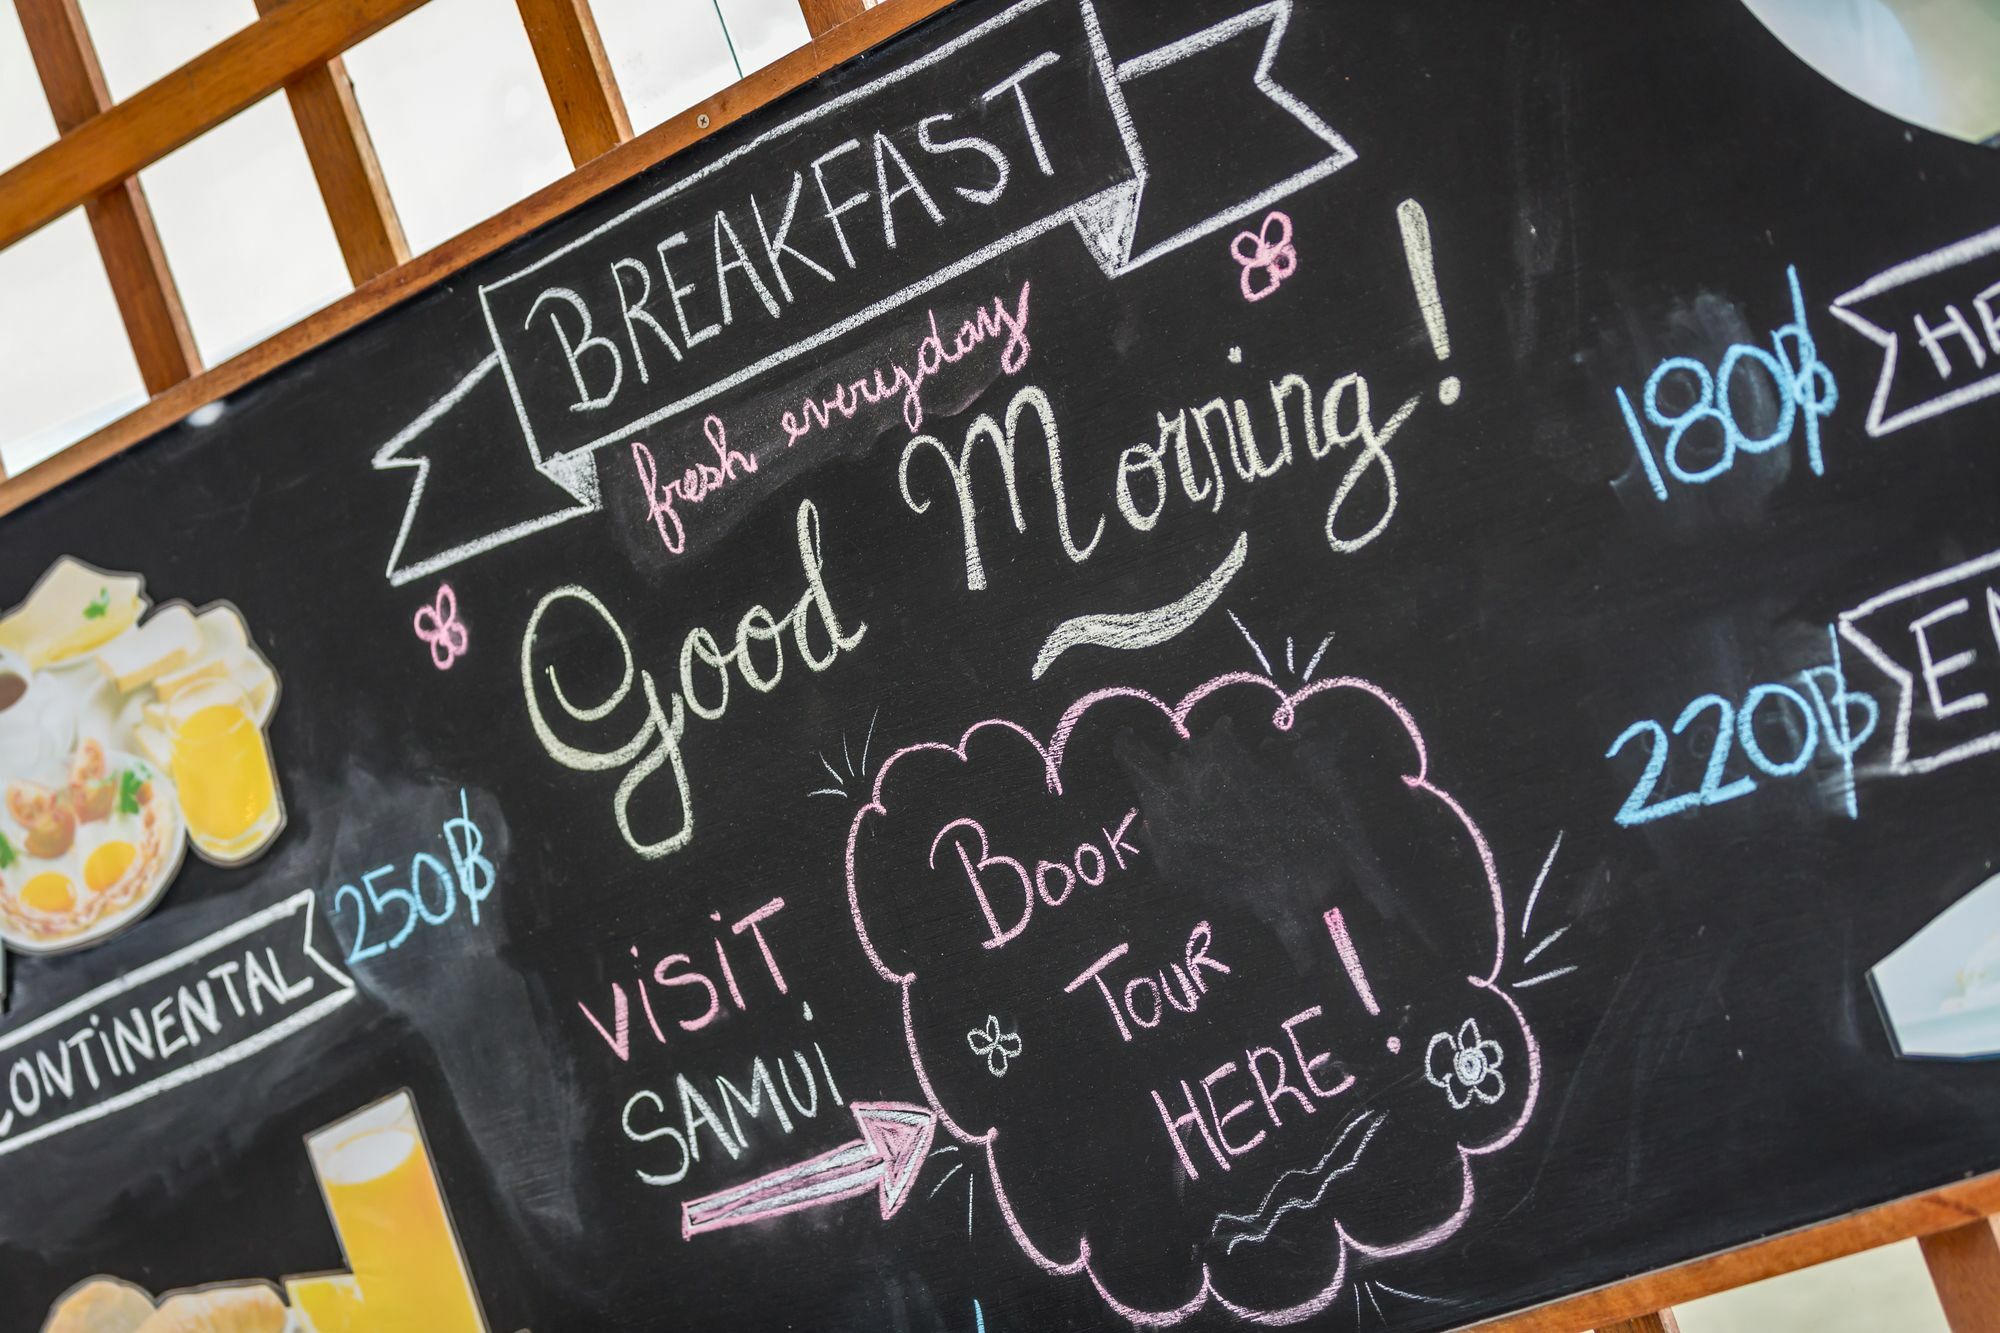 BREAKFAST
fresh everyday
Good Morning!
180฿
220฿
250฿
CONTINENTAL
ViSiT
SAMUi
BOOK
TOUR
HERE!